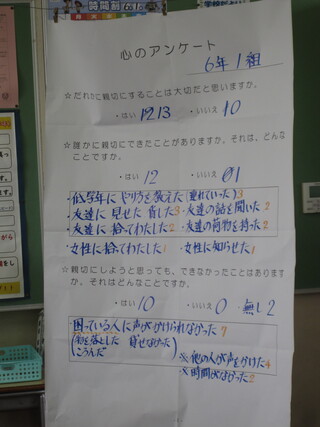 時間割
心のアンケート
6年1組
☆だれかに親切にすることは大切だと思いますか。
・はい 1213 ・いいえ 10
☆誰かに親切にできたことがありますか。それは、どんな
ことですか。
・はい 12 ・いいえ 01
・低学年に やり方を教えた(連れていった)3
・友達に 見せた 貸した3 ・友達の話を聞いた2
・友達に 拾ってわたした2 ・友達の荷物を持った2
・女性に拾ってわたした1 ・女性に知らせた1
☆親切にしようと思っても、できなかったことはあります
か。それはどんなことですか。
・はい 10 ・いいえ 0 無し2
・困っている人に声がかけられなかった7
(物を落とした 貸せなかった
ころんだ
※他の人が声をかけた4
※時間がなかった2